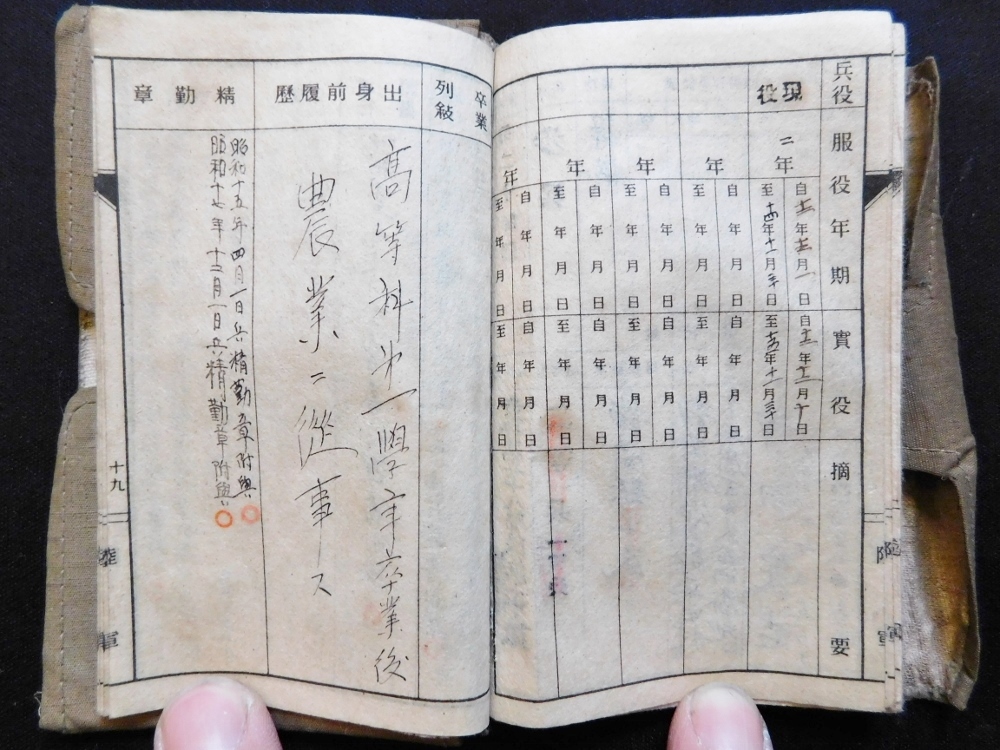 兵役
服役年期
實役
摘要
現役
二年
自十二年十二月一日
至十四年十一月三十日
年
自 年 月 日
至 年 月 日
自 年 月 日
至 年 月 日
年
自 年 月 日
至 年 月 日
自 年 月 日
至 年 月 日
年
自 年 月 日
至 年 月 日
自 年 月 日
至 年 月 日
年
自 年 月 日
至 年 月 日
自 年 月 日
至 年 月 日
卒業
列敍
出身前履歷
高等科第一學年卒業後
農業ニ從事ス
精勤章
昭和十五年四月一日兵精勤章附與
昭和十七年十二月一日兵精勤章附與
十九
陸軍